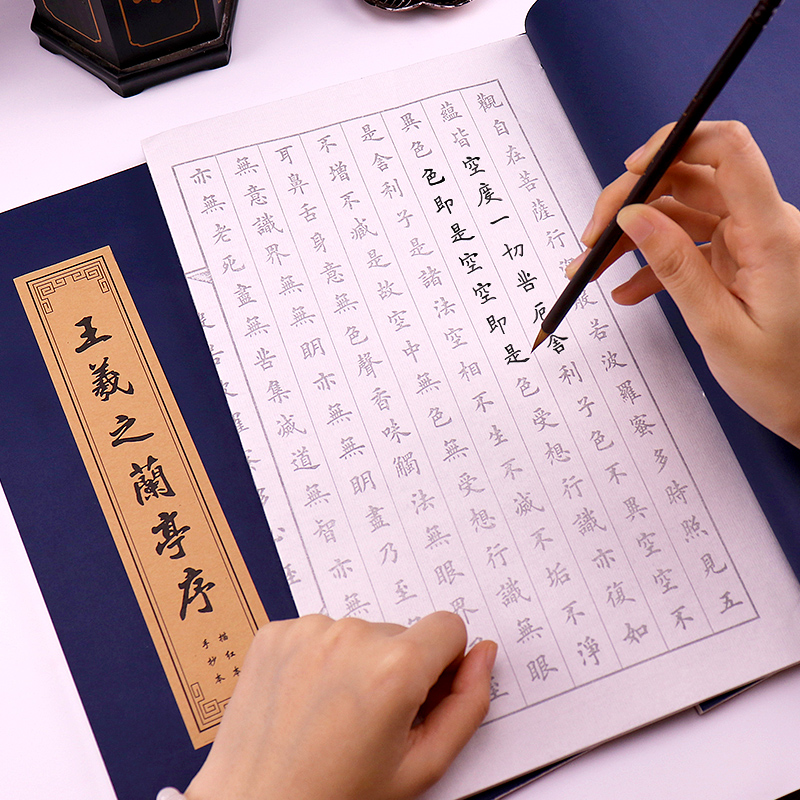 觀自在菩薩行深般若波羅蜜多時照見五
蘊皆空度一切苦厄舍利子色不異空空不
異色色即是空空即是色受想行識亦復如
是舍利子是諸法空相不生不滅不垢不淨
不增不減是故空中無色無受想行識無眼
耳鼻舌身意無色聲香味觸法無眼界至
無意識界無無明亦無無明盡乃至
亦無老死盡無苦集滅道無智亦無
王羲之蘭亭序
描红本
手抄本